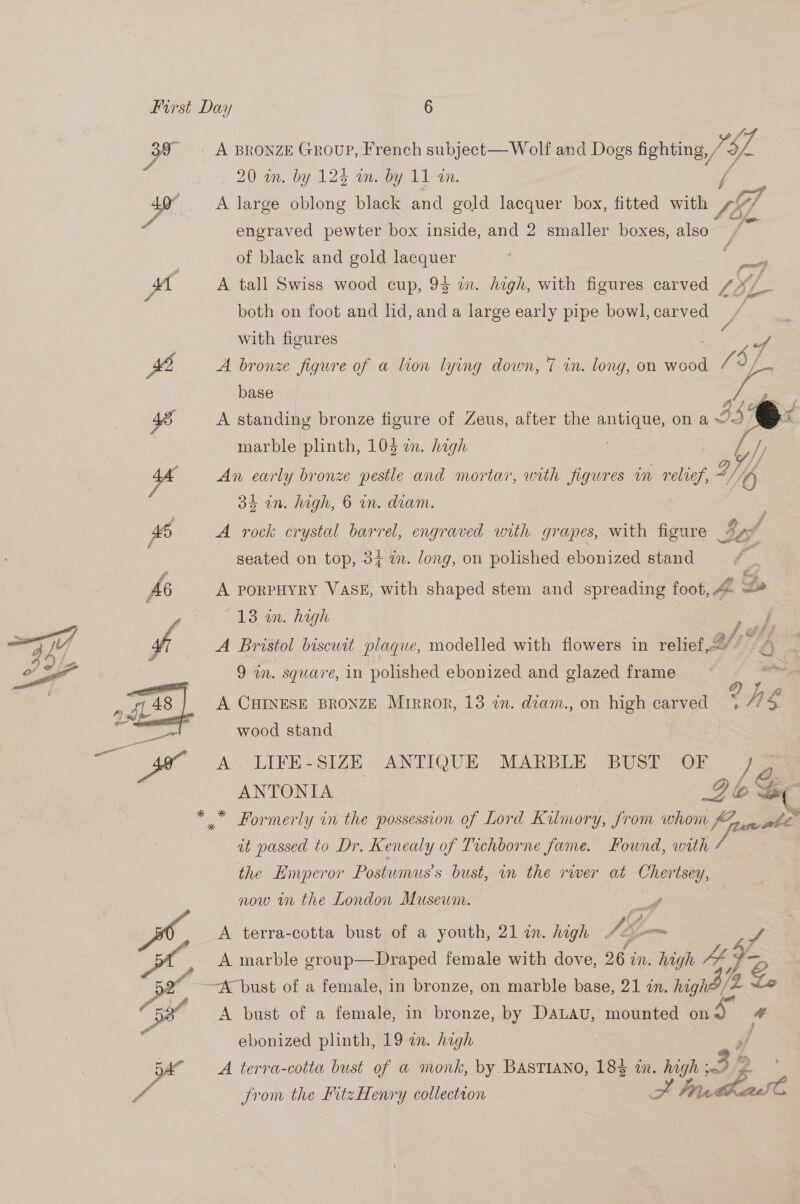 First Day 6
39 A BRONZE GROUP, French subject—Wolf and Dogs fighting,
20 in. by 12½ in. by 11 in.
40 A large oblong black and gold lacquer box, fitted with
engraved pewter box inside, and 2 smaller boxes, also
of black and gold lacquer
41 A tall Swiss wood cup, 9½ in. high, with figures carved
both on foot and lid, and a large early pipe bowl, carved
with figures
42 A bronze figure of a lion lying down, 7 in. long, on wood
base
43 A standing bronze figure of Zeus, after the antique, on a
marble plinth, 10½ in. high
44 An early bronze pestle and mortar, with figures in relief,
3½ in. high, 6 in. diam.
45 A rock crystal barrel, engraved with grapes, with figure
seated on top, 3¼ in. long, on polished ebonized stand
46 A PORPHYRY VASE, with shaped stem and spreading foot,
13 in. high
47 A Bristol biscuit plaque, modelled with flowers in relief,
9 in. square, in polished ebonized and glazed frame
48 A CHINESE BRONZE MIRROR, 13 in. diam., on high carved
wood stand
49 A LIFE-SIZE ANTIQUE MARBLE BUST OF
ANTONIA
*** Formerly in the possession of Lord Kilmory, from whom
it passed to Dr. Kenealy of Tichborne fame. Found, with
the Emperor Postumus's bust, in the river at Chertsey,
now in the London Museum.
50 A terra-cotta bust of a youth, 21 in. high
51 A marble group—Draped female with dove, 26 in. high
52 A bust of a female, in bronze, on marble base, 21 in. high
53 A bust of a female, in bronze, by DALAU, mounted on
ebonized plinth, 19 in. high
54 A terra-cotta bust of a monk, by BASTIANO, 18½ in. high;
from the FitzHenry collection